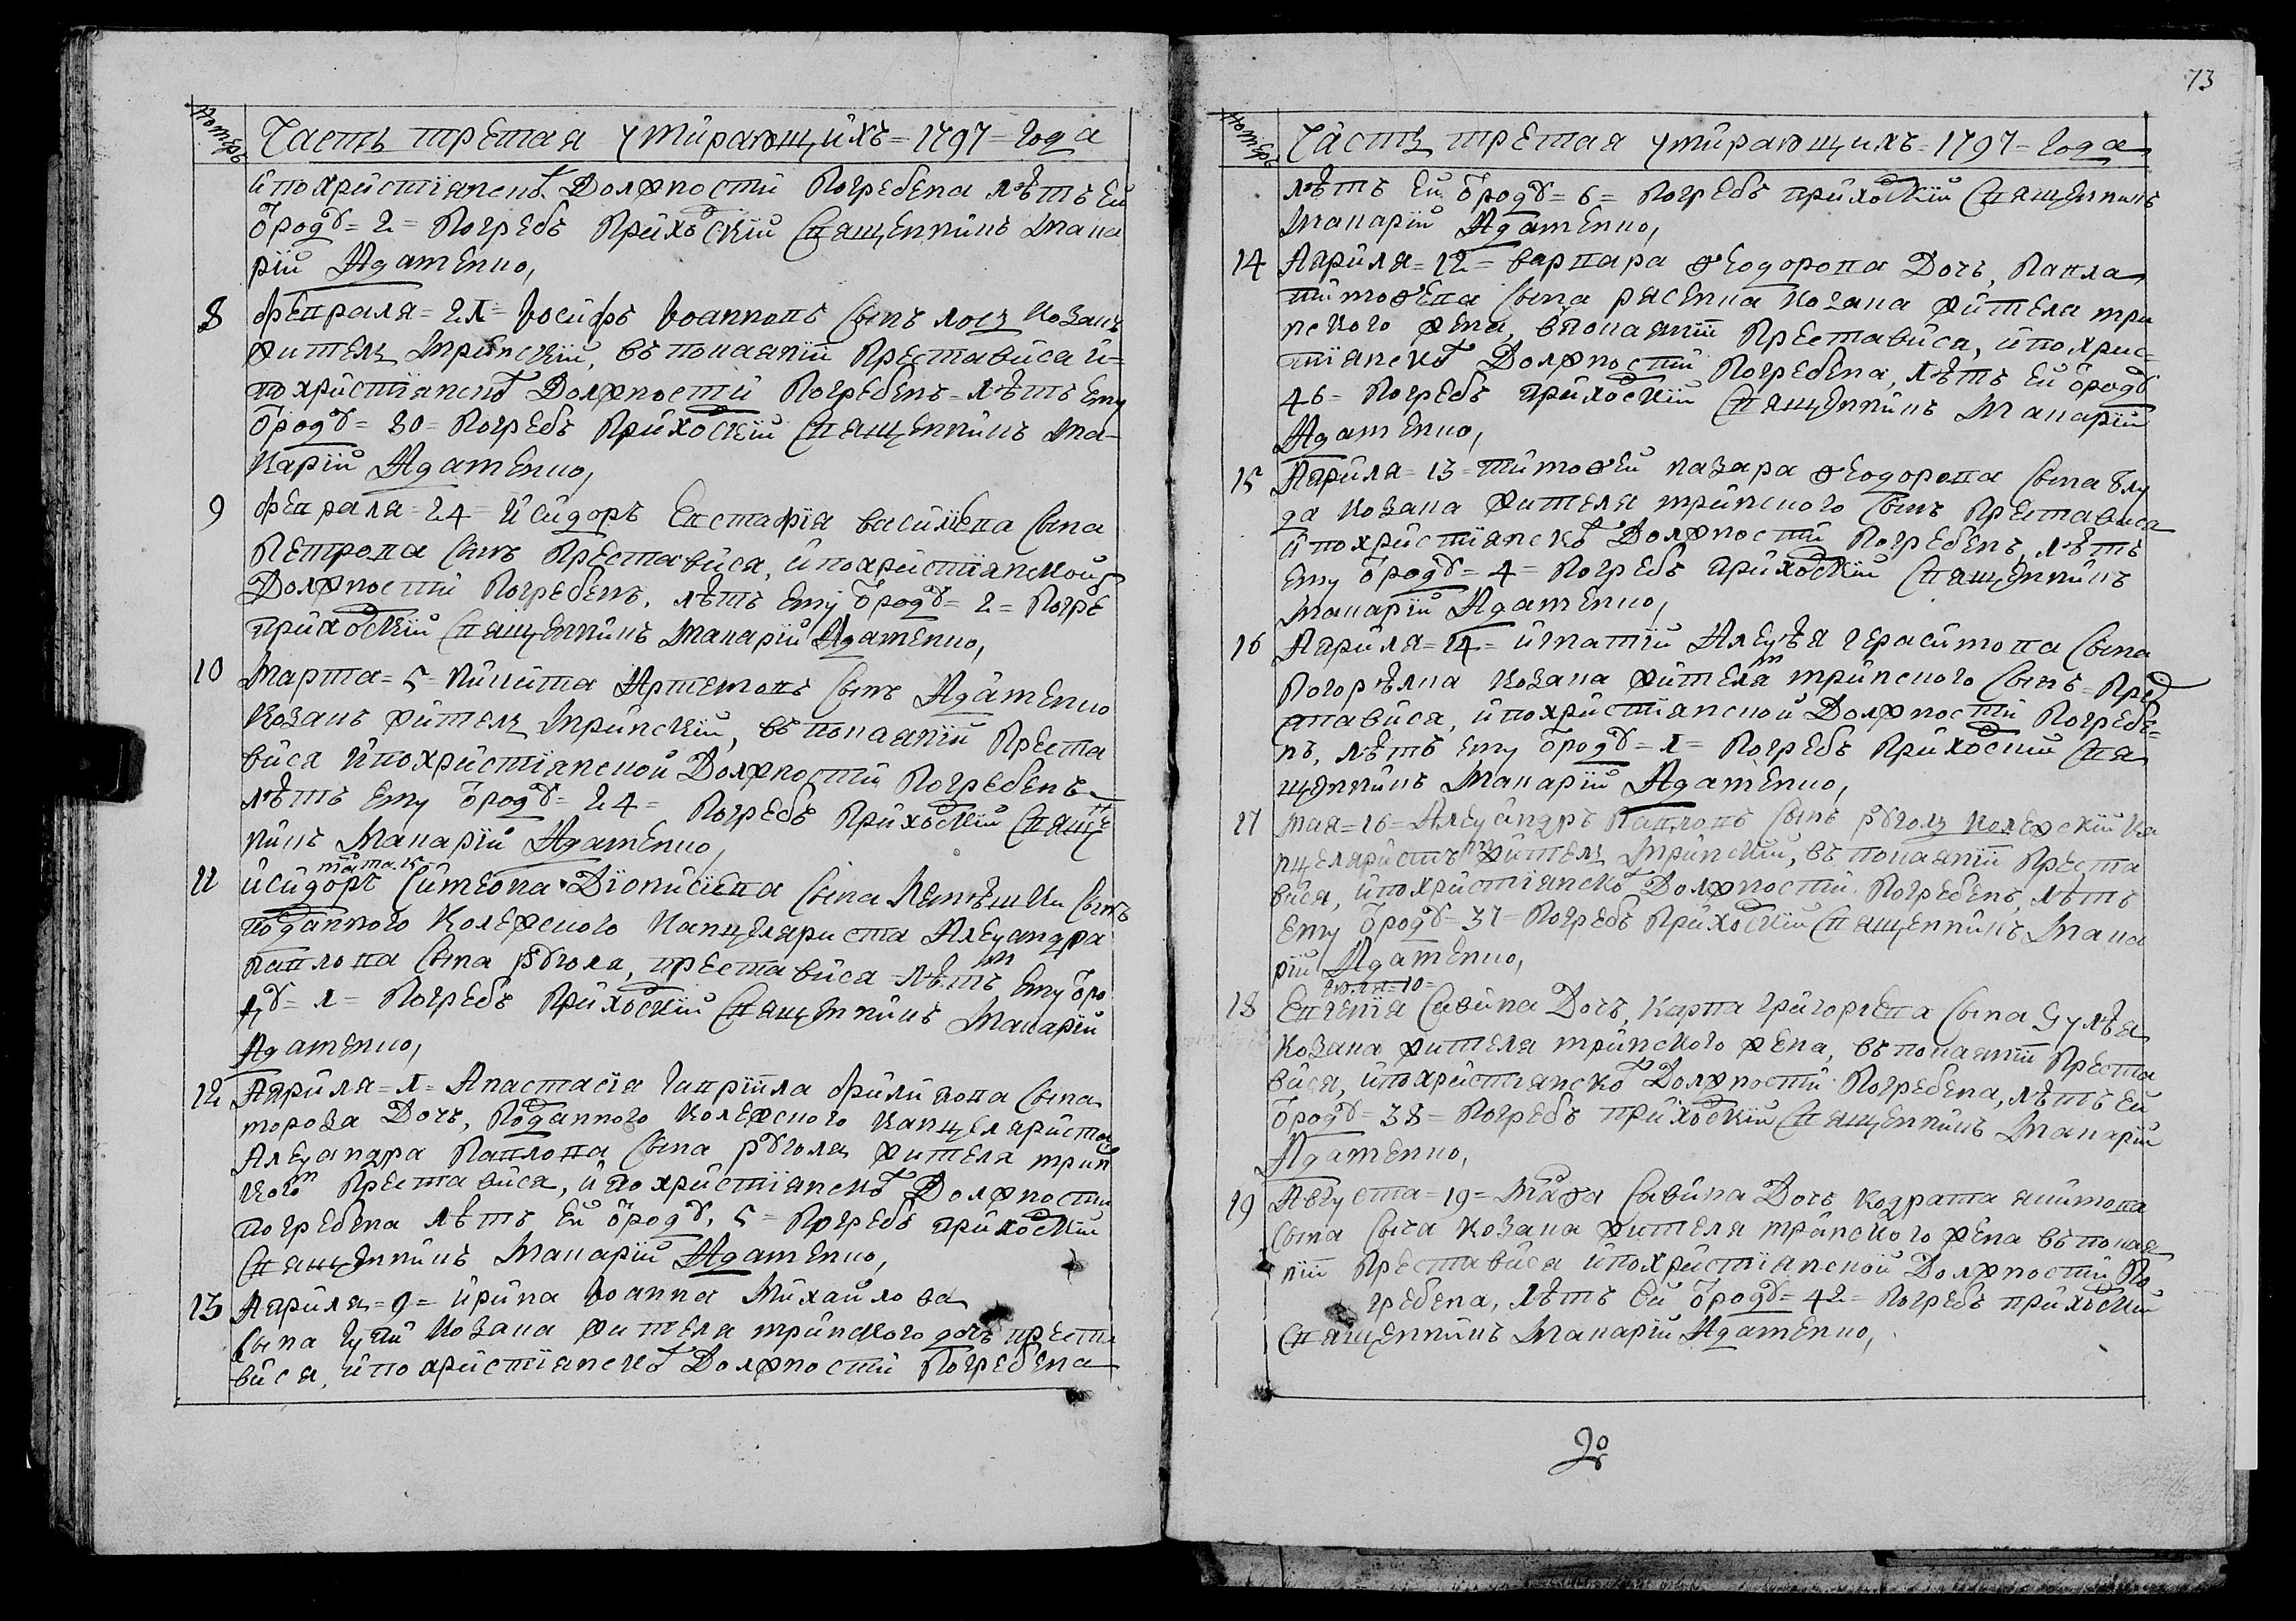 Номеръ
Часть третая умирающихъ = 1797 = года
и по христіянской Должности Погребена лѣтъ ей
ѿроду = 2 = Погребъ Приходскій Священникъ Мака
рій Адаменко,
8 Февраля = 21 = Іосифъ Іоанновъ Сынъ Лось Козакъ
житель Мринскій, въ покаяніи Преставися и =
по христіянской Должности Погребенъ = лѣтъ ему
ѿроду = 30 = Погребъ Приходскій Священникъ Ма-
карій Адаменко,
9 Февраля = 24 = Исидоръ Евстафія Василіева Сына
Петрова Сынъ Преставися, и по христіянской
Должности Погребенъ, лѣтъ ему ѿроду = 2 = Погре
приходскій Священникъ Макарій Адаменко,
10 Марта = 5 = Никита Артемовъ Сынъ Адаменко
Козакъ житель Мринскій, въ покаяніи Преста
вися и по христіянской Должности Погребенъ
лѣтъ ему ѿроду = 24 = Погребъ Приходскій Свяще
никъ Макарій Адаменко,
марта 15
11 Исидоръ Симеона Діонисіева Сына Сынъ
подданного Колежского Канцеляриста Алеѯандра
Павлова Сына Рубгола, преставися лѣтъ ему ѿро
ду = 1 = Погребъ Приходскій Священникъ Макарій
Адаменко,
12 Априля = 1 = Анастасія Гавріила Филипова Сына
мороза Дочъ, Подданного Колежского Канцеляриста
Алеѯандра Павлова Сына житела мрин
кого Преставися, и по христіянской Должности
погребена лѣтъ ей ѿроду, 5 = Погребъ приходскій
Священникъ Макарій Адаменко,
13 Априля = 9 = Ирина Іоанна Михайлова
Сына Козака жителя мринского дочъ преста
вися, и по христіянской Должности Погребена
73
Номеръ
Часть третая умирающихъ = 1797 = года
лѣтъ ей ѿроду = 6 = Погребъ приходскій Священникъ
Макарій Адаменко,
14 Априля = 12 = Варвара Ѳеодорова Дочъ, Павла
Тимоѳева Сына Козака жителя мри
нского жена, в покаяніи Преставися, и по хрис-
тіянской Должности Погребена, лѣтъ ей ѿроду
46 = Погребъ приходскій Священникъ Макарій
Адаменко,
15 Априля = 13 = Тимоѳей назара Ѳеодорова Сына блу
да Козака жителя мринского Сынъ Преставися
и по христіянской Должности Погребенъ, лѣтъ
ему ѿроду = 4 = Погребъ приходскій Священникъ
Макарій Адаменко,
16 Априля = 14 = игнатій Алеѯѣя герасимова Сына
Погорѣлка Козака жителя мринского Сынъ = Пре
ставися, и по христіянской Должности Погребе=
нъ, лѣтъ ему ѿроду = 1 = Погребъ Приходскій Свя
щенникъ Макарій Адаменко,
17 Мая = 16 = Алеѯандръ Павловъ Сынъ Колежскій Ка
нцеляристъ житель Мринскій, въ покаяніи Преста
вися, и по христіянской Должности Погребенъ, лѣтъ
ему ѿроду = 37 = Погребъ Приходскій Священникъ Мака
рій Адаменко,
Іюля = 10 =
18 Евгенія Савина Дочъ, Карпа григориева Сына
Козака жителя мринского жена, въ покаяніи Преста
вися, и по христіянской Должности Погребена, лѣтъ ей
ѿроду = 38 = Погребъ приходскій Священникъ Макарій
Адаменко,
19 Августа = 19 = Марѳа Савина Дочъ Кодрата якимова
Сына Сыча Козака жителя мринского жена въ покая
ніи Преставися и по христіянской Должности По
гребена, лѣтъ ей ѿроду = 42 = Погребъ приходскій
Священникъ Макарій Адаменко,